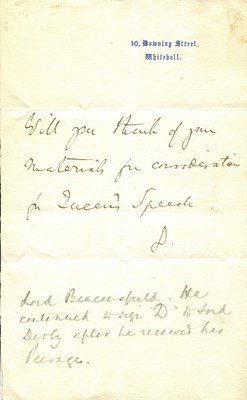 10, Downing Street,
Whitehall.
Will you think of your
materials for consideration
for Queen's Speech
D.
Lord Beaconsfield. He
continued to sign "D" to Lord
Derby after he received his
Peerage.